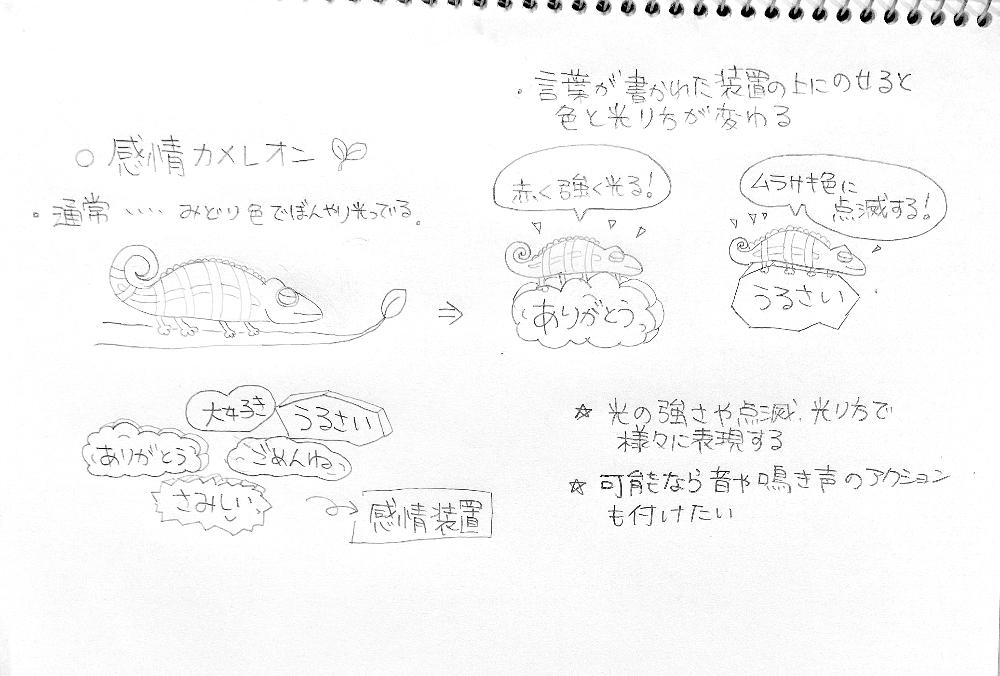 ○ 感情カメレオン
・通常 ‥‥ みどり色でぼんやり光っている。
・言葉が書かれた装置の上にのせると
色と光り方が変わる
赤く強く光る!
ムラサキ色に
点滅する!
⇒
ありがとう
うるさい
大好き
うるさい
ありがとう
ごめんね
さみしい
感情装置
☆ 光の強さや点滅、光り方で
様々に表現する
☆ 可能なら音や鳴き声のアクション
も付けたい